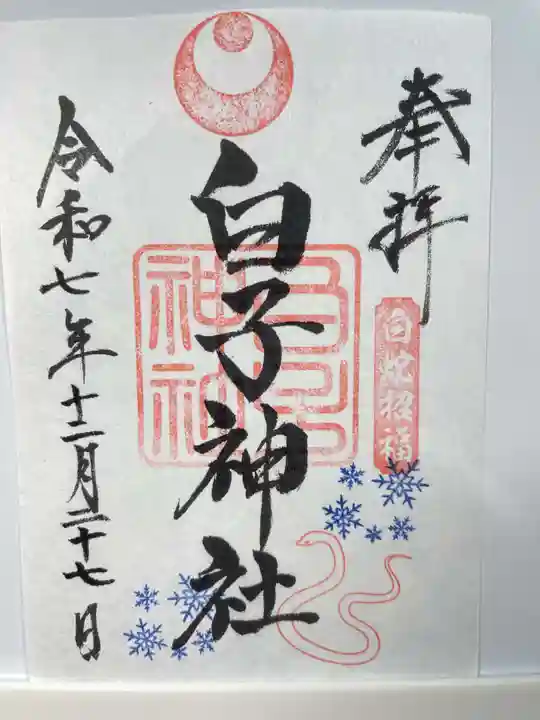 奉拝
白蛇招福
白子神社
令和七年十二月二十七日